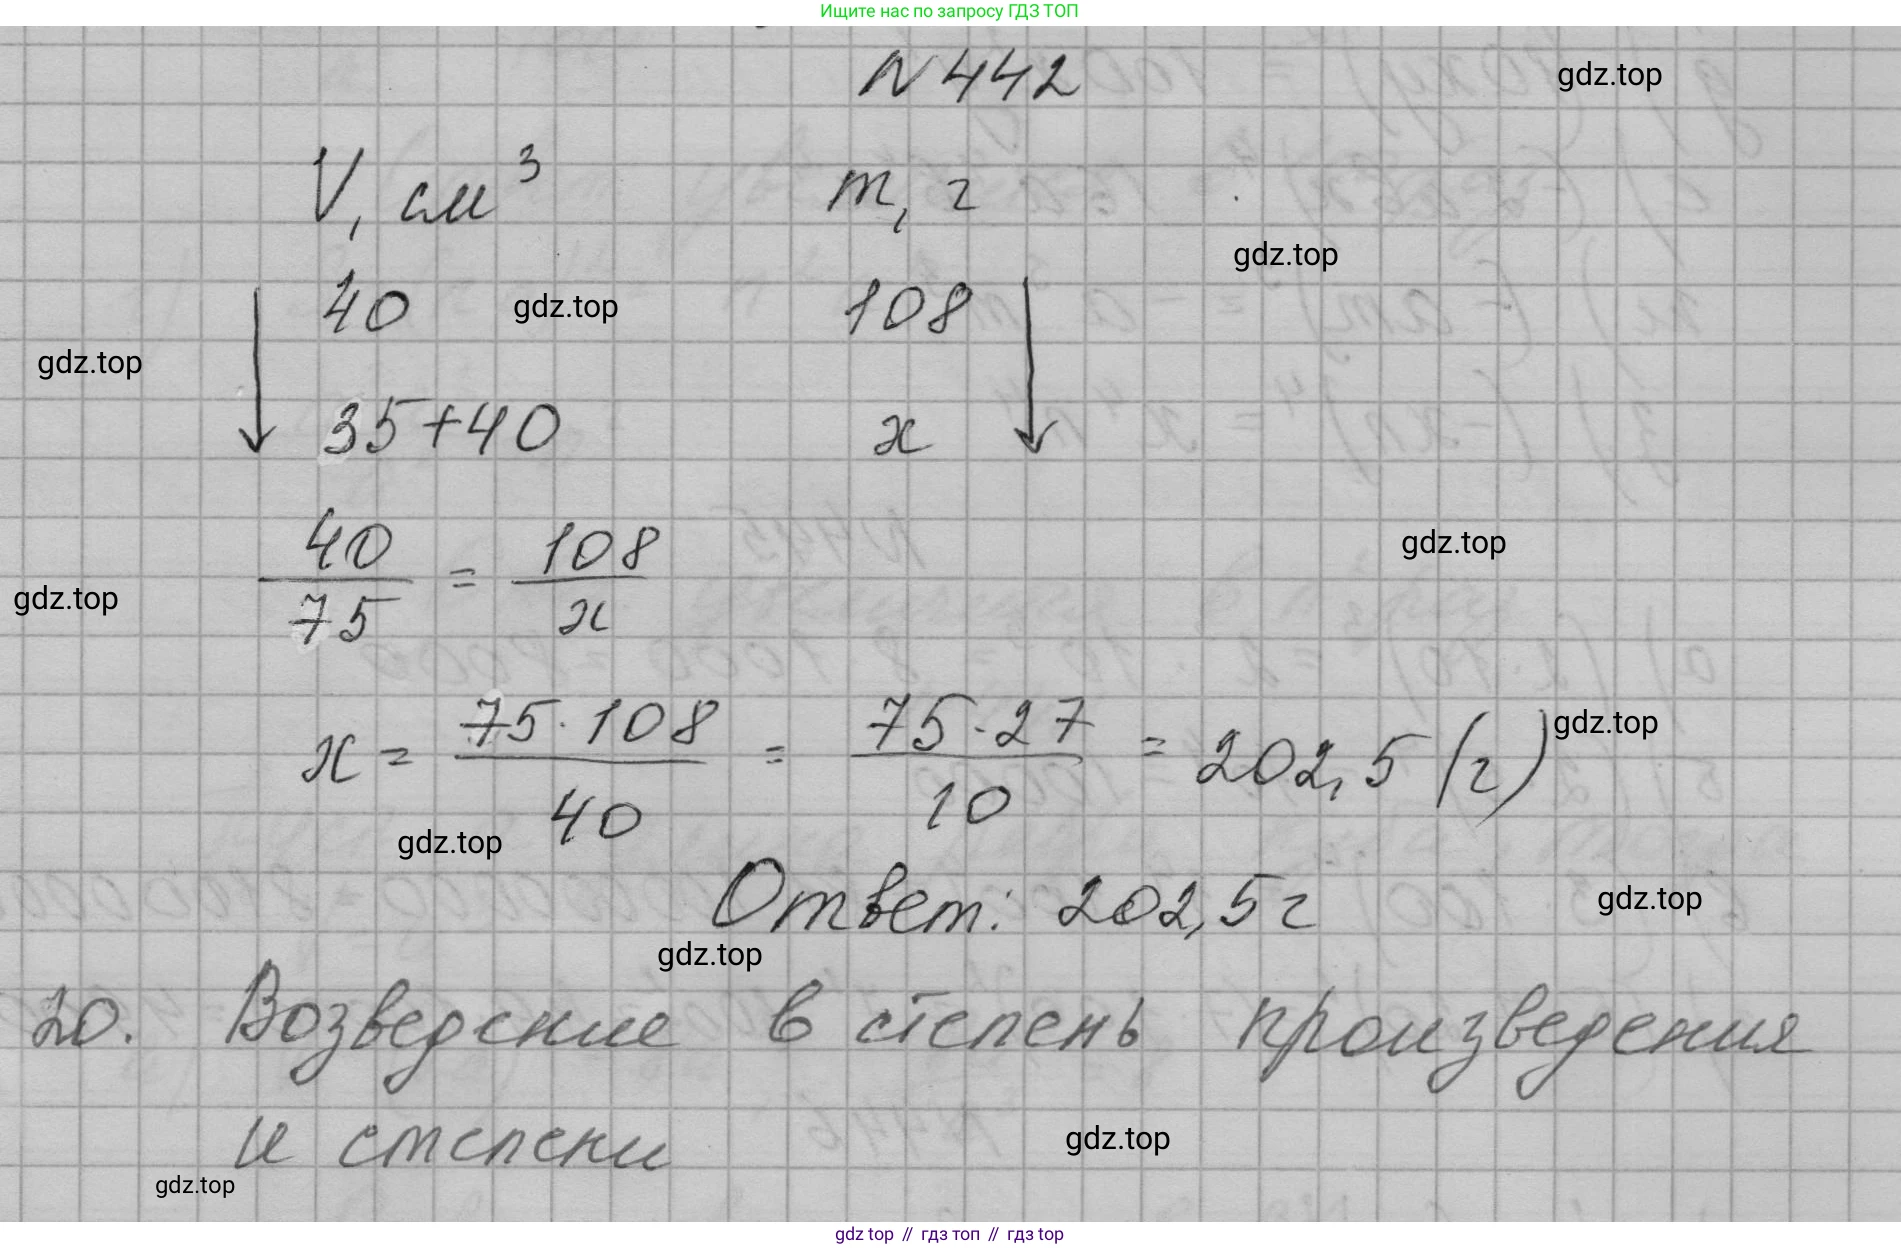 Ищите нас по запросу ГДЗ ТОП
N 442
gdz.top
V, см³ m, г
gdz.top
40 108
gdz.top
gdz.top
35+40 x
40/75 = 108/x
gdz.top
gdz.top
x = 75·108/40 = 75·27/10 = 202,5 (г)
gdz.top
gdz.top
Ответ: 202,5 г
gdz.top
gdz.top
20. Возведение в степень произведения
и степени
gdz.top
gdz.top
gdz top // гдз топ // гдз top